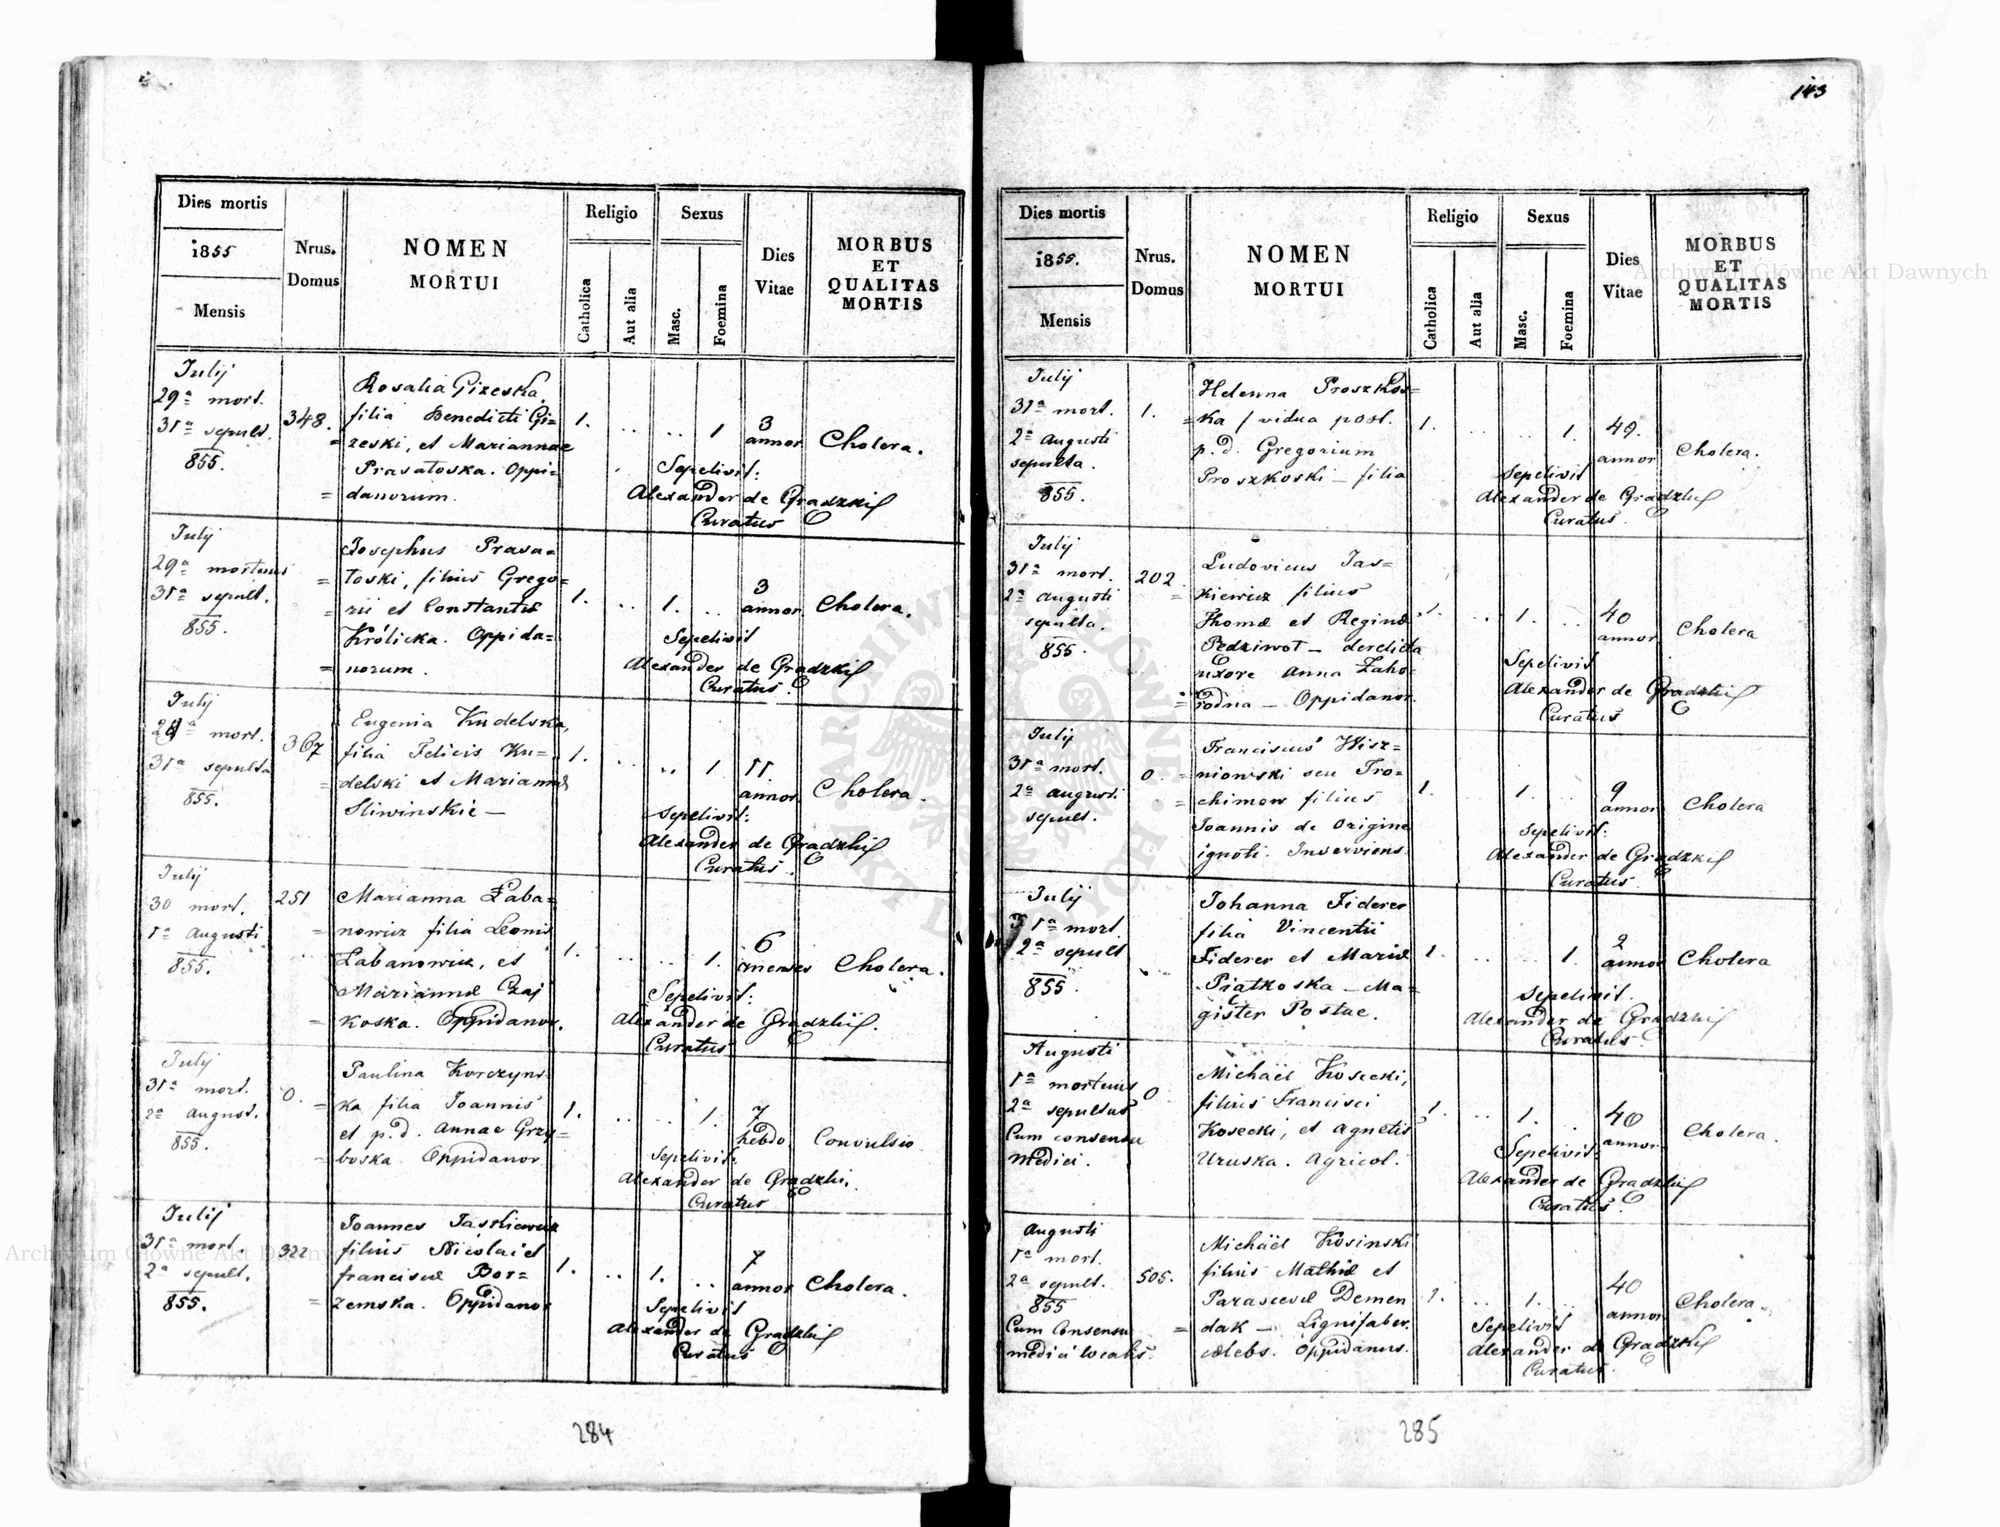 143
Dies mortis
1855
Mensis
Nrus.
Domus
NOMEN
MORTUI
Religio
Catholica
Aut alia
Sexus
Masc.
Foemina
Dies
Vitae
MORBUS
ET
QUALITAS
MORTIS
Julij
29ª mort.
31ª sepult.
855.
348.
Rosalia Gizeska,
filia Benedicti Gi=
=zeski, et Mariannae
Prasatoska. Oppi=
=danorum.
1.
.. ..
1
3
annor
Cholera.
Sepelivit:
Alexander de Gradzki
Curatus
Julij
29ª mortuus
31ª sepult.
855.
Josephus Prasa=
=toski, filius Grego=
=rii et Constantiæ
Królicka. Oppida=
=norum.
1.
..
1.
..
3
annor
Cholera.
Sepelivit
Alexander de Gradzki
Curatus.
Julij
mort.
31ª sepulta
855.
367
Eugenia Kudelska,
filia Felicis Ku=
=delski et Mariannæ
Sliwinskie —
1.
.. ..
1
11
annor.
Cholera.
Sepelivit:
Alexander de Gradzki
Curatus.
Julij
30 mort.
1ª Augusti
855.
251
Marianna Łaba=
=nowicz filia Leonis
Łabanowicz, et
Mariannæ Czaj
=koska. Oppidanor.
1.
.. ..
1.
6
menses
Cholera.
Sepelivit:
Alexander de Gradzki.
Curatus
Julij
31ª mort.
2ª August.
855.
0.
Paulina Korczyns
=ka filia Joannis
et p.d. Annae Grzy=
=boska. Oppidanor.
1.
.. ..
1.
7
hebdo
Convulsio
Sepelivit:
Alexander de Gradzki.
Curatus
Julij
31ª mort.
2ª sepult.
855.
322
Joannes Jaszkiewicz
filius Nicolai et
franciscæ Bor=
=zemska. Oppidanor
1.
..
1.
..
7
annor
Cholera.
Sepelivit
Alexander de Gradzki
Curatus
284
Dies mortis
1855.
Mensis
Nrus.
Domus
NOMEN
MORTUI
Religio
Catholica
Aut alia
Sexus
Masc.
Foemina
Dies
Vitae
MORBUS
ET
QUALITAS
MORTIS
Julij
31ª mort.
2ª Augusti
sepulta.
855.
1.
Helenna Proszkos=
=ka / vidua post.
p.d. Gregorium
Proszkoski — filia
1.
.. ..
1.
49.
annor
Cholera.
Sepelivit
Alexander de Gradzki
Curatus.
Julij
31ª mort.
2ª Augusti
sepulta.
855.
202.
Ludovicus Jas=
=kiewicz filius
Thomæ et Reginæ
Pędziwot — derelicta
uxore Anna Zaho=
=rodna — Oppidanor.
1.
..
1.
..
40
annor
Cholera
Sepelivit
Alexander de Gradzki
Curatus
Julij
31ª mort.
2ª augusti
sepult.
0.
Franciscus Wisz=
=niowski seu Tro=
=chimow filius
Joannis de Origine
ignoti. Inserviens.
1.
..
1.
..
9
annor
Cholera
Sepelivit:
Alexander de Gradzki
Curatus.
Julij
31ª mort.
2ª sepult
855.
Johanna Fiderer
filia Vincentii
Fiderer et Mariæ
Piątkoska — Ma=
gister Postae.
1.
.. ..
1.
2
annor
Cholera
Sepelivit.
Alexander de Gradzki
Curatus.
Augusti
1ª mortuus
2ª sepultus
Cum consensu
medici.
0
Michaël Kosecki,
filius Francisci
Kosecki, et Agnetis
Uruska. Agricol.
1.
..
1.
..
40
annor
Cholera.
Sepelivit:
Alexander de Gradzki
Curatus.
Augusti
1ª mort.
2ª sepult.
855
Cum Consensu
medici localis.
505.
Michaël Kosinski
filius Mathiæ et
Parascevæ Demen
=dak — Lignifaber.
cælebs. Oppidanus.
1.
..
1.
..
40
annor
Cholera.
Sepelivit
Alexander de Gradzki
Curatus.
285
Archiwum Główne Akt Dawnych
Archiwum Główne Akt Dawnych